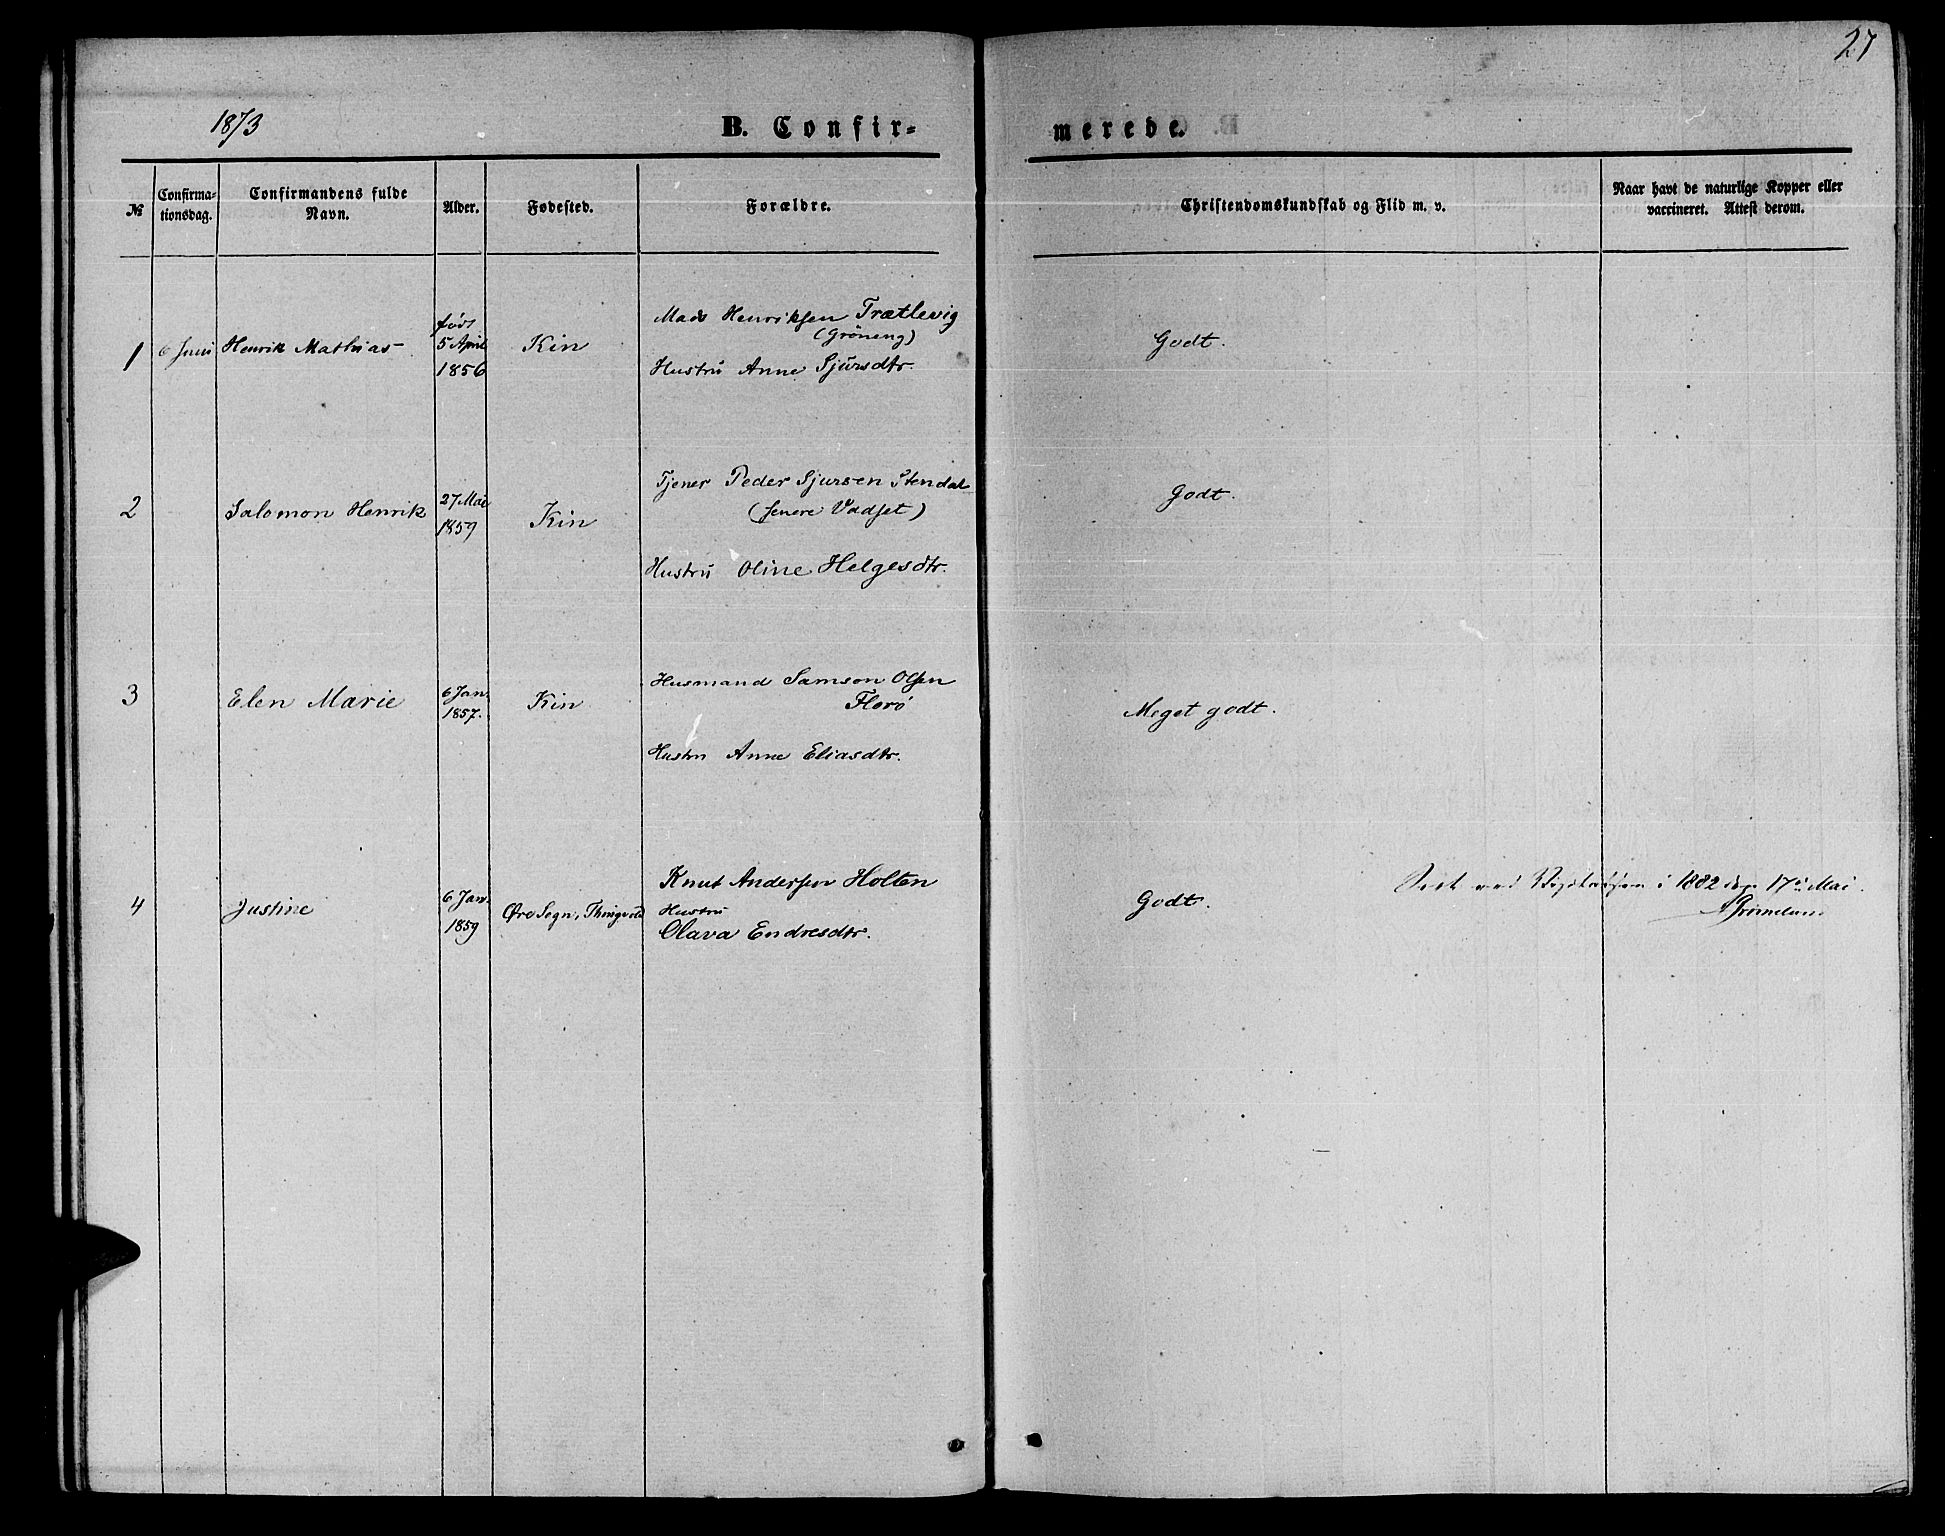 27
1873
B. Confir-
merede.
№
Confirma-
tionsdag.
Confirmandens fulde
Navn.
Alder.
Fødested.
Forældre.
Christendomskundskab og Flid m. v.
Naar havt de naturlige Kopper eller
vaccineret. Attest derom.
1
6 Juni
Henrik Mathias
født
5 April
1856
Kin
Mads Henriksen Trætlevig
(Gröneng)
Hustrü Anne Sjürsdtr.
Godt.
2
Salomon Henrik
27 Mai
1859
Kin
Tjener Peder Sjursen Stendal
(senere Vadset)
Hustrü Oline Helgesdtr.
Godt.
3
Elen Marie
6 Jan.
1857.
Kin
Husmand Samson Olsen
Florø
Hustru Anne Eliasdtr.
Meget godt.
4
Justine
6 Jan.
1859
Øre Sogn, Thingvold
Knut Andersen Holten
Hustrü
Olava Endresdtr.
Godt.
ved i 1882 17 Mai.